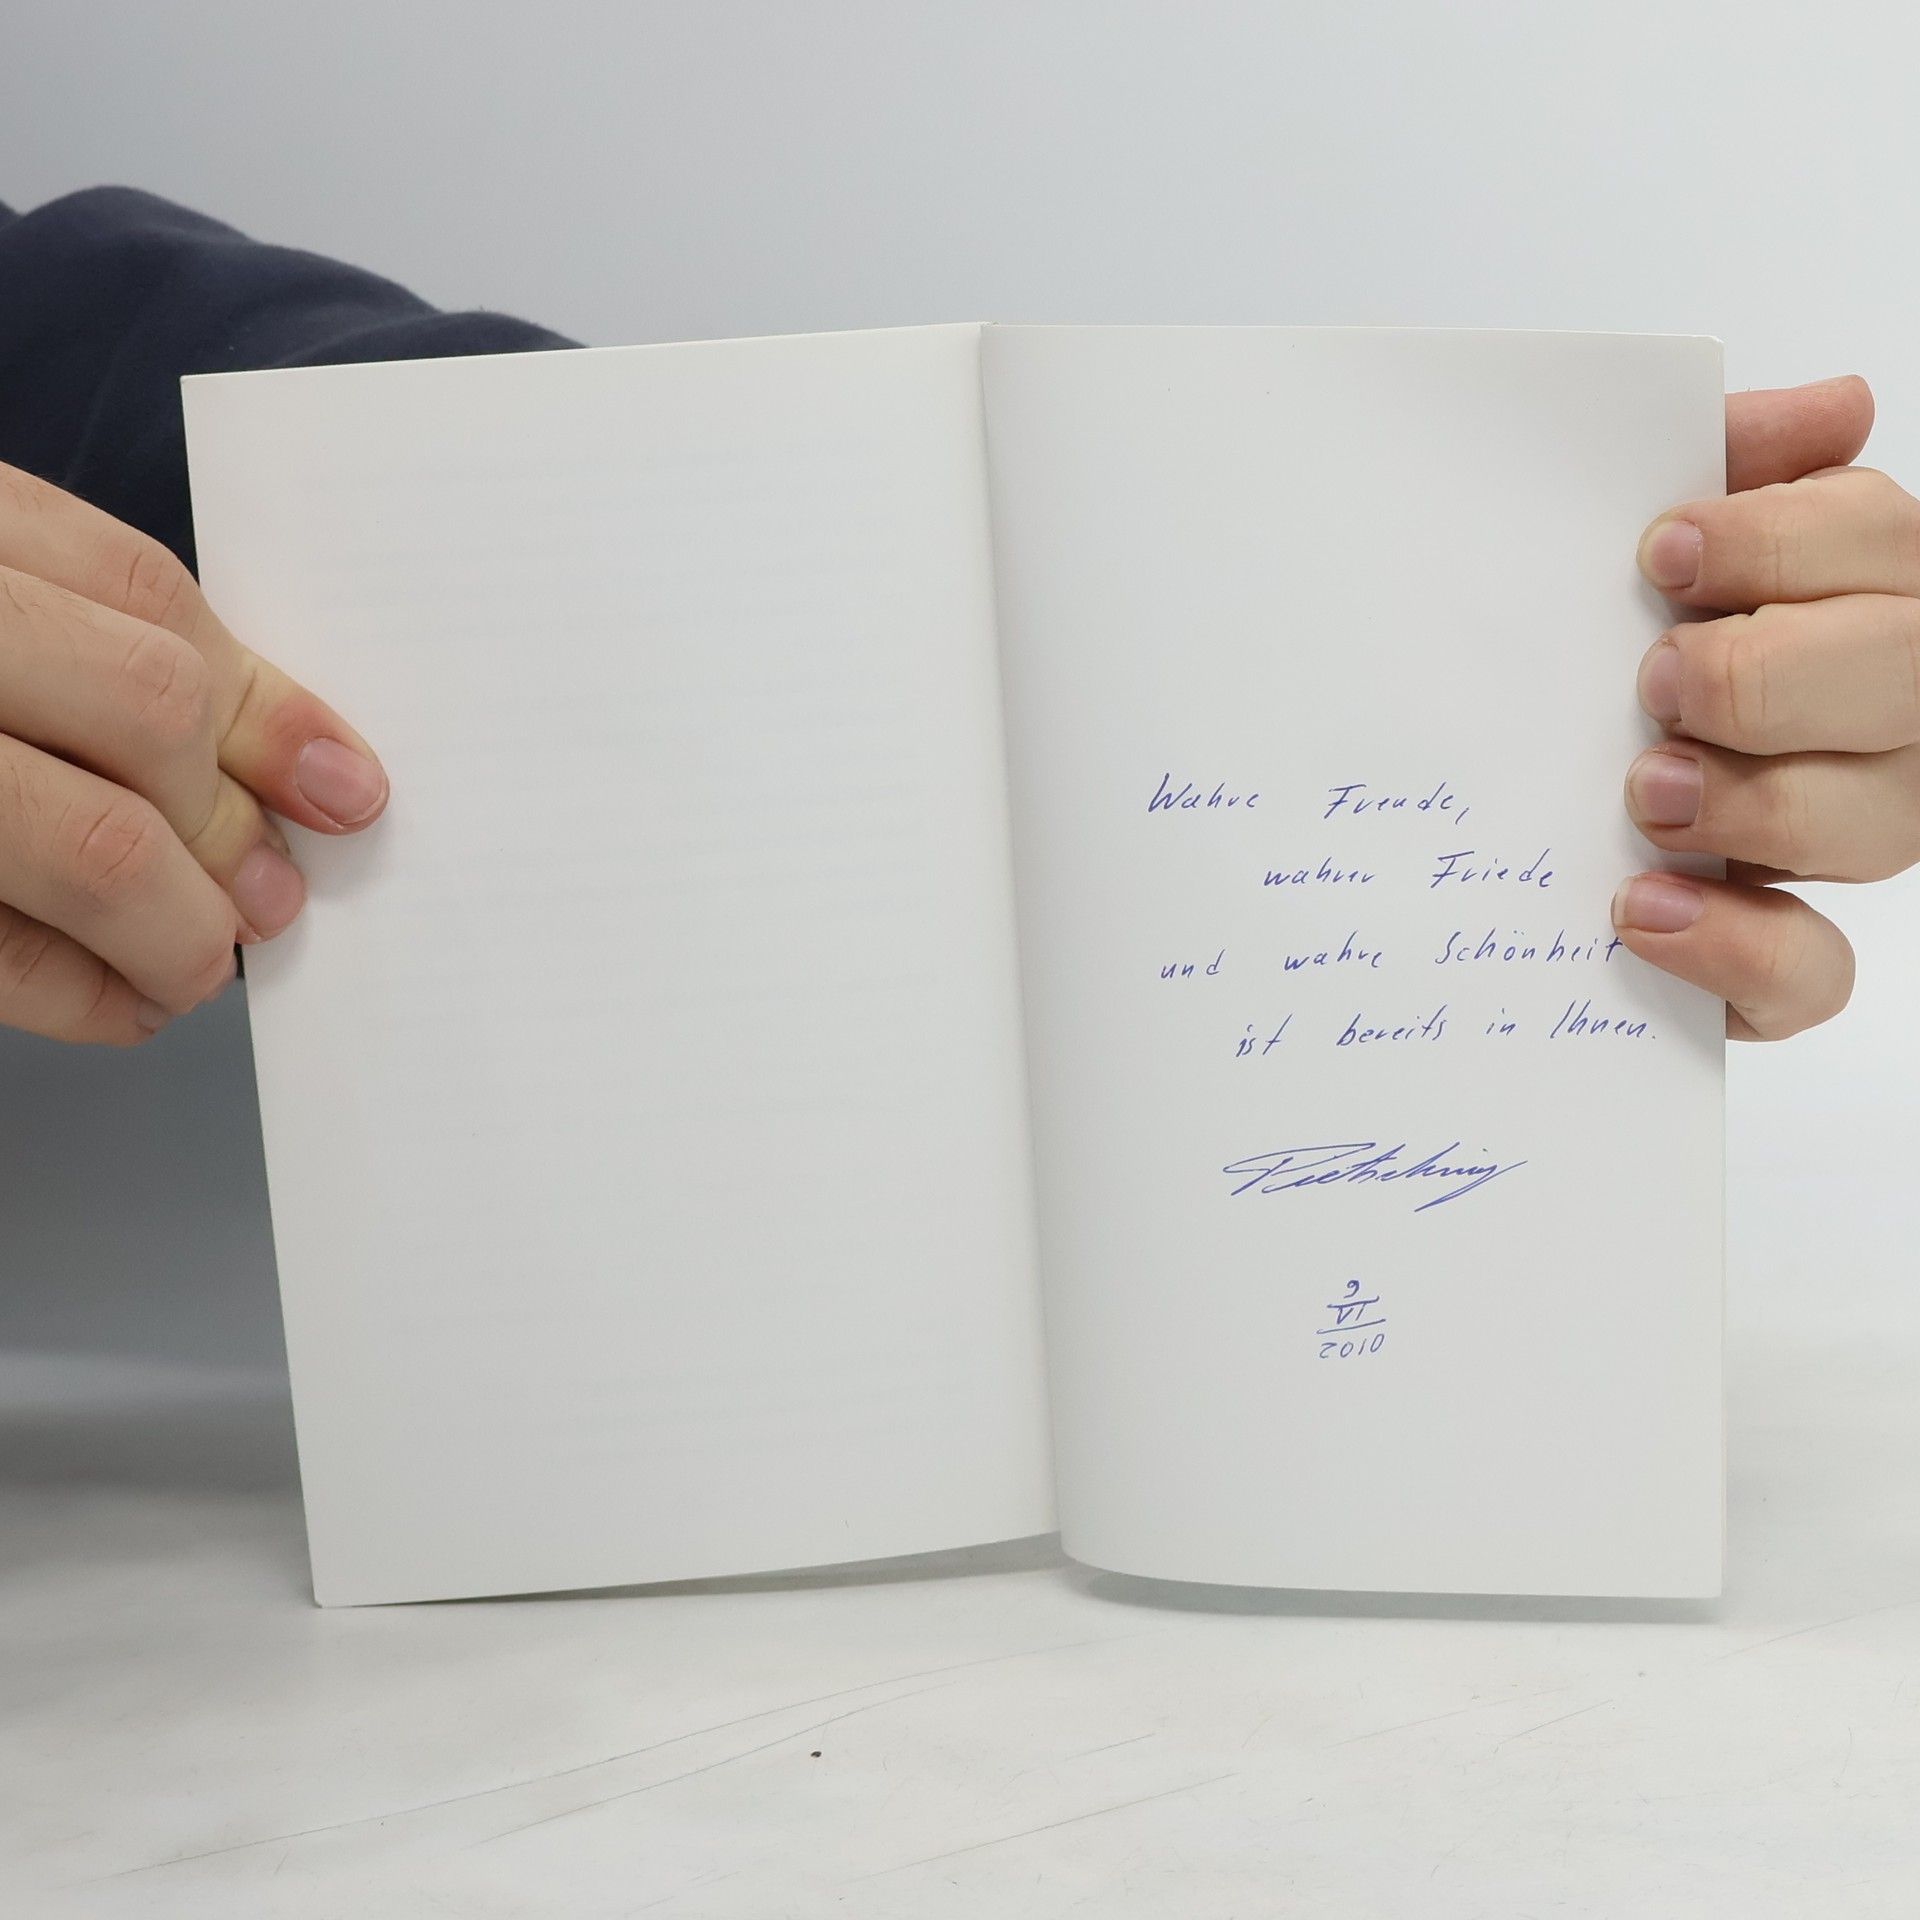 Wahre Freude,
wahrer Friede
und wahre Schönheit
ist bereits in Ihnen.
9
VI
2010